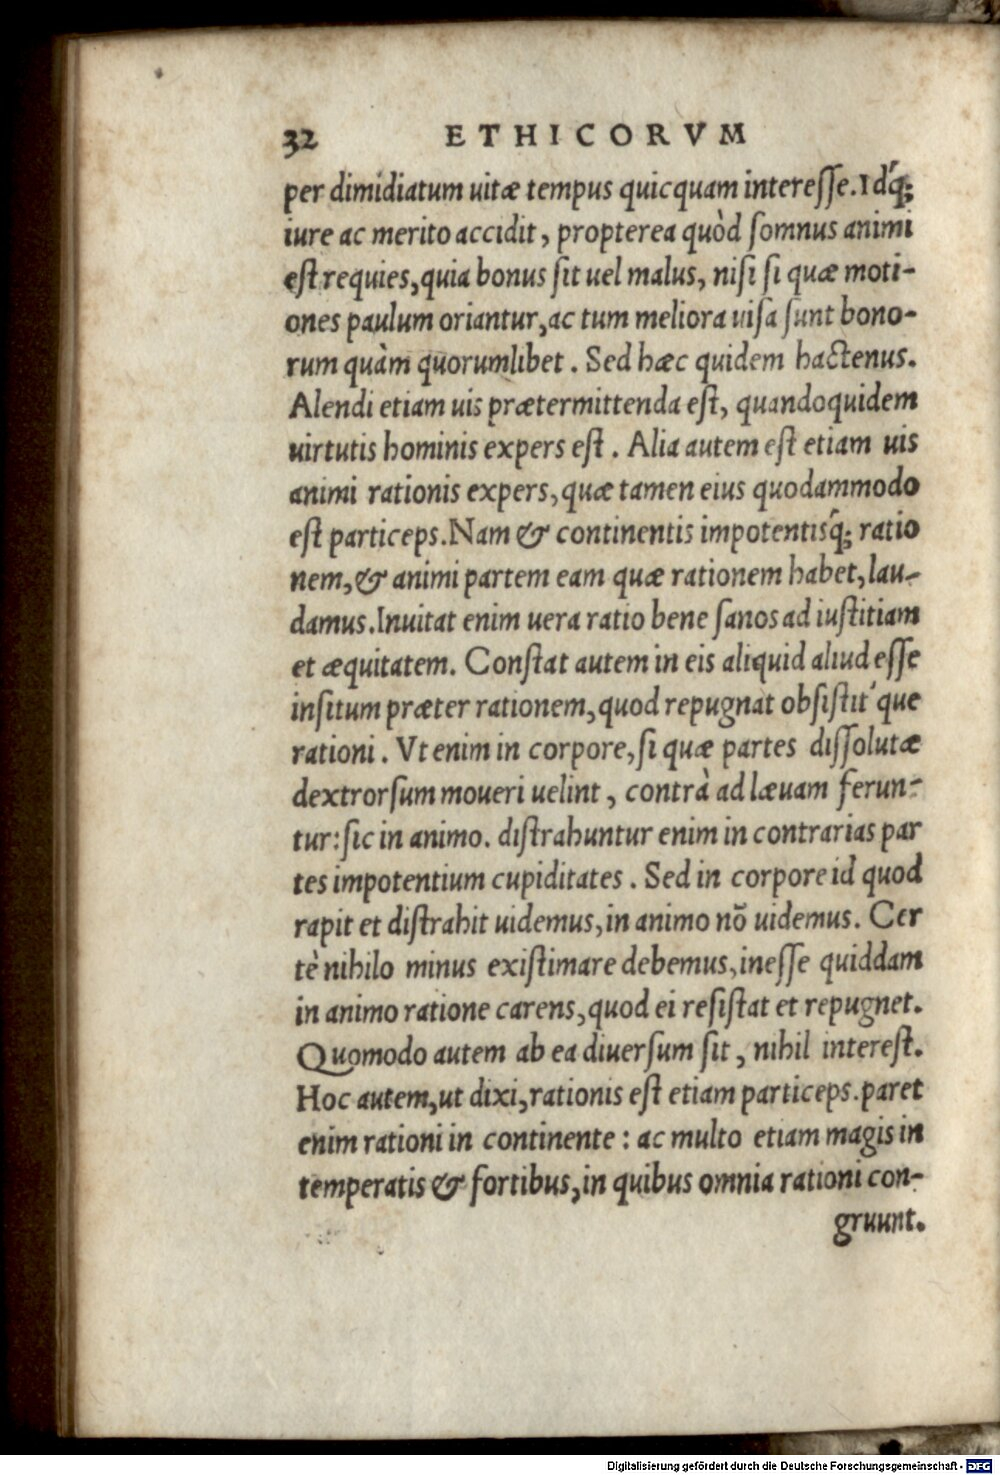 32 ETHICORVM
per dimidiatum uitæ tempus quicquam interesse. Idq́;
iure ac merito accidit, propterea quòd somnus animi
est requies, quia bonus sit uel malus, nisi si quæ moti-
ones paulum oriantur, ac tum meliora uisa sunt bono-
rum quàm quorumlibet. Sed hæc quidem hactenus.
Alendi etiam uis prætermittenda est, quandoquidem
uirtutis hominis expers est. Alia autem est etiam uis
animi rationis expers, quæ tamen eius quodammodo
est particeps. Nam & continentis impotentisq́; ratio
nem, & animi partem eam quæ rationem habet, lau-
damus. Inuitat enim uera ratio bene sanos ad iustitiam
et æquitatem. Constat autem in eis aliquid aliud esse
insitum præter rationem, quod repugnat obsistit´que
rationi. Vt enim in corpore, si quæ partes dissolutæ
dextrorsum moueri uelint, contrà ad læuam ferun-
tur: sic in animo. distrahuntur enim in contrarias par
tes impotentium cupiditates. Sed in corpore id quod
rapit et distrahit uidemus, in animo nõ uidemus. Cer
tè nihilo minus existimare debemus, inesse quiddam
in animo ratione carens, quod ei resistat et repugnet.
Quomodo autem ab ea diuersum sit, nihil interest.
Hoc autem, ut dixi, rationis est etiam particeps. paret
enim rationi in continente: ac multo etiam magis in
temperatis & fortibus, in quibus omnia rationi con-
gruunt.
Digitalisierung gefördert durch die Deutsche Forschungsgemeinschaft - DFG